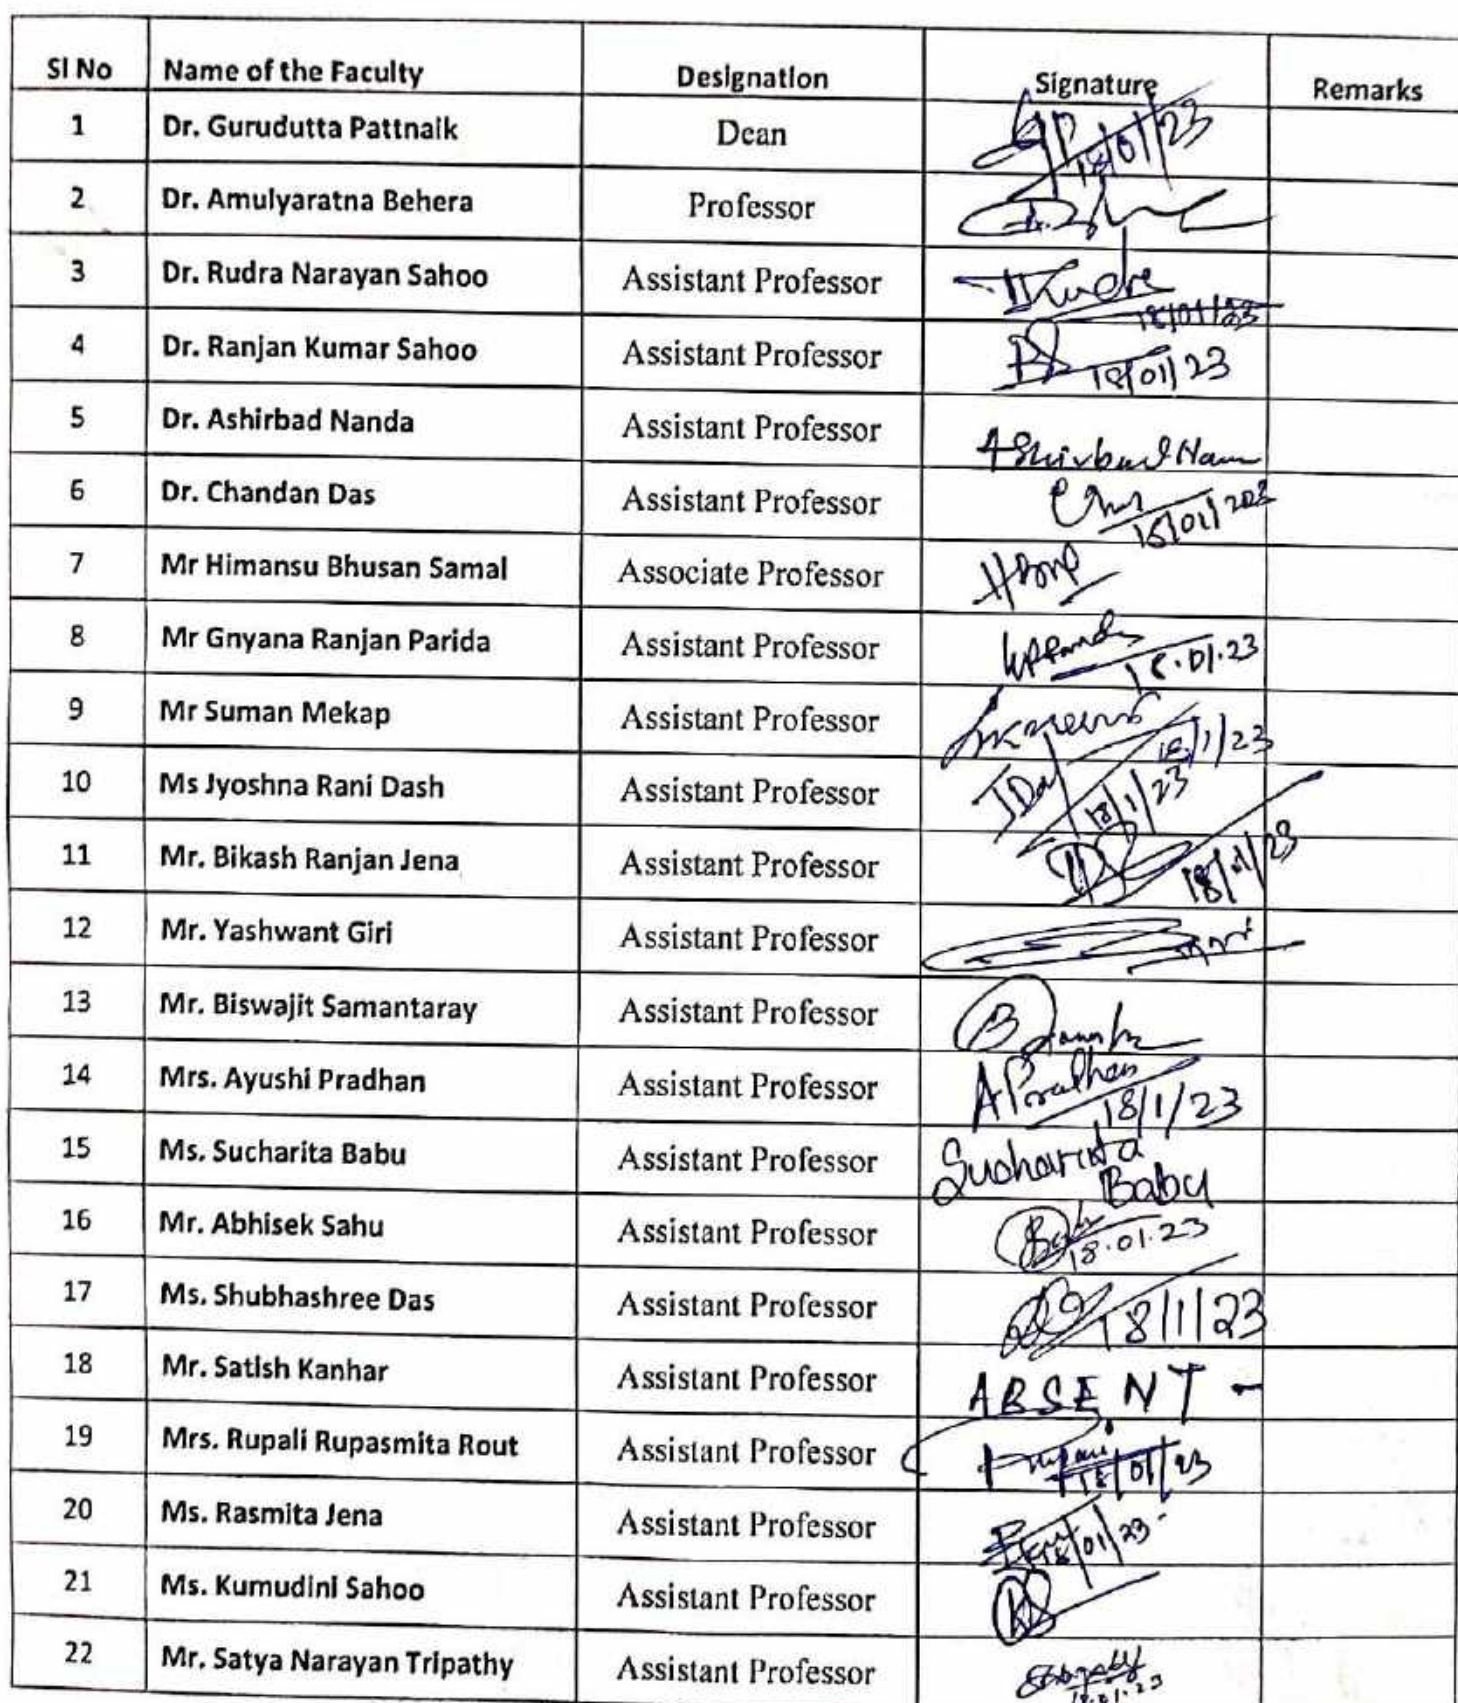 Sl No Name of the Faculty Designation Signature Remarks
1 Dr. Gurudutta Pattnaik Dean 18/01/23
2 Dr. Amulyaratna Behera Professor
3 Dr. Rudra Narayan Sahoo Assistant Professor Rudra 18/01/23
4 Dr. Ranjan Kumar Sahoo Assistant Professor 18/01/23
5 Dr. Ashirbad Nanda Assistant Professor Ashirbad Nan
6 Dr. Chandan Das Assistant Professor 18/01/2023
7 Mr Himansu Bhusan Samal Associate Professor
8 Mr Gnyana Ranjan Parida Assistant Professor 18.01.23
9 Mr Suman Mekap Assistant Professor 18/1/23
10 Ms Jyoshna Rani Dash Assistant Professor JDas 18/1/23
11 Mr. Bikash Ranjan Jena Assistant Professor 18/01/23
12 Mr. Yashwant Giri Assistant Professor
13 Mr. Biswajit Samantaray Assistant Professor B
14 Mrs. Ayushi Pradhan Assistant Professor APradhan 18/1/23
15 Ms. Sucharita Babu Assistant Professor Sucharita
Babu
16 Mr. Abhisek Sahu Assistant Professor 18.01.23
17 Ms. Shubhashree Das Assistant Professor 18/1/23
18 Mr. Satish Kanhar Assistant Professor ABSENT -
19 Mrs. Rupali Rupasmita Rout Assistant Professor 18/01/23
20 Ms. Rasmita Jena Assistant Professor 18/01/23
21 Ms. Kumudini Sahoo Assistant Professor
22 Mr. Satya Narayan Tripathy Assistant Professor 18.01.23